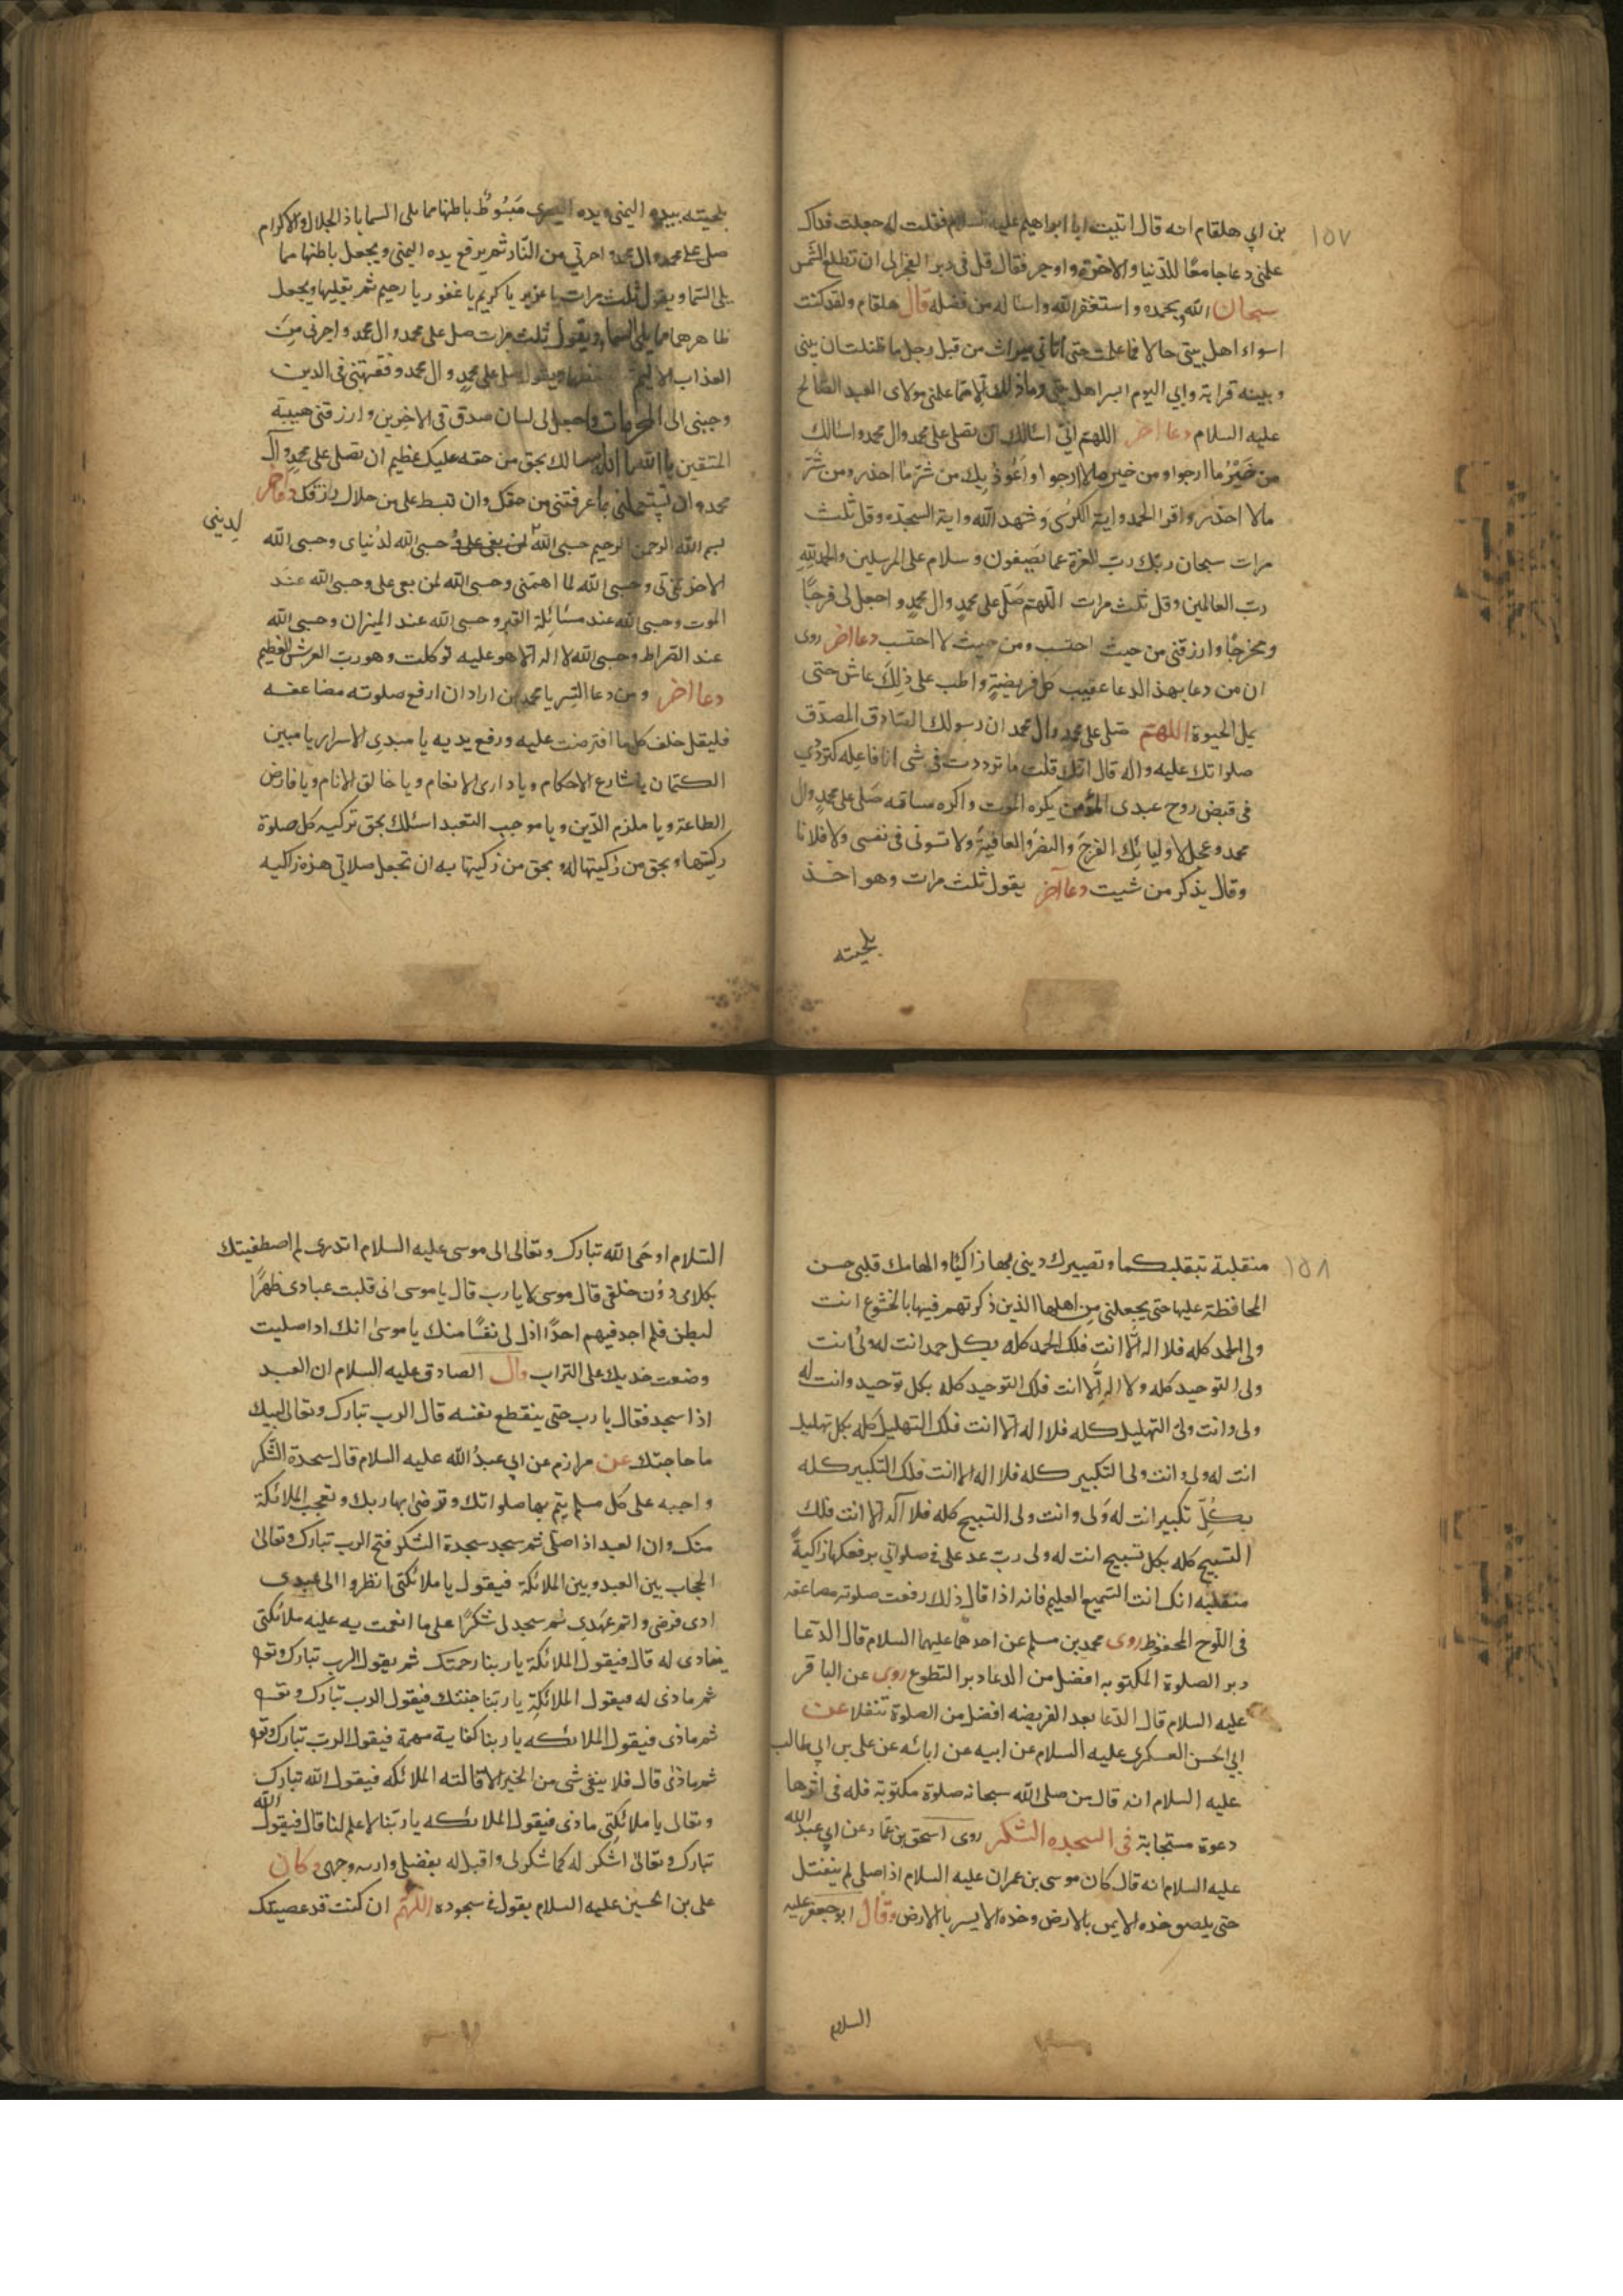 ١٥٧
بن ابي هلقام انه قال اتيت ابا ابراهيم عليه السلام فقلت له جعلت فداك
علمنى دعا جامعًا للدّنيا والاخرة واوجز فقال قل فى دبر الفجر الى ان تطلع الشمس
سبحان الله وبحمده واستغفر الله واساله من فضله قال هلقام ولقد كنت
اسواء اهل بيتى حالا فما علمت حتى اتاني ميراث من قبل رجل ما ظننت ان بينى
وبينه قرابة واني اليوم ايسر اهل بيتى وما ذلك الا مما علمنى مولاى العبد الصّالح
عليه السلام دعا اخر اللهم انّي اسالك ان تصلى على محمد وال محمد واسالك
من خَيْرُ ما ارجوا ومن خير ما لا ارجوا واَعُوذ بِك من شرّ ما احذر ومن شرّ
مالا احذر واقرا الحمد واية الكرسى وشهد الله واية السجدة وقل ثلث
مرات سبحان ربّك ربّ العزة عما يصفون وسلام على المرسلين والحمد لله
ربّ العالمين وقل ثلث مرات اللّهم صَلّ على محمدٍ وال محمدٍ واجعل لى فرجًا
ومخرجًا وارزقنى من حيث احتسب ومن حيث لا احتسب دعا اخر روى
ان من دعا بهذ الدعا عقيب كل فريضةٍ واظب على ذلِكَ عاش حتى
يمل الحيوة اللهم صَلى على محمد وال محمد ان رسولك الصّادق المصدّق
صلواتك عليه واله قال انّك قلت ما ترددت فى شى انا فاعِله كتردّدي
فى قبض روح عبدى المؤمن يكره الموت واكره مسائته صَلى على محمدٍ وال
محمد وعجل لاوليائك الفرج والنصر والعافية ولا تسونى فى نفسى ولا فلانا
وقال يذكر من شيت دعا آخر يقول ثلث مرات وهو اخذ
بلحيته
بلحيته بيده اليمنى ويده اليسرى مَبْسُوطٌ باطنها مما يلى السما يا ذا الجلال والاكرام
صلى على محمد وال محمد واجرني من النّار ثم يرفع يده اليمنى ويجعل باطنها مما
يلى السّما ويقول ثلث مرات يا عزيز يا كريم يا غفور يا رحيم ثم يقلبها ويجعل
ظاهرهما مما يلى السما ويقول ثلث مرات صل على محمد وال محمد واجرنى مِنَ
العذاب الاليم ويقول صل على محمدٍ وال محمد وفقهنى فى الدين
وحببنى الى واجعل لى لسان صدق فى الاخِرين وارزقنى هيبة
المتقين يا الله يا الله اسالك بحق من حقه عليك عظيم ان تصلى على محمد وآل
محمد وان تستعملنى بما عرفتنى من حقك وان تبسط على من حلال رزقك دعا اخر
لدينى
بسم الله الرحمن الرحيم حسبى الله حسبى الله لدُنياى وحسبى الله
لاخرتى وحسبى الله لما اهمّنى وحسبى الله لمن بغى على وحسبى الله عند
الموت وحسبى الله عند مسَائِلة القبر وحسبى الله عند الميزان وحسبى الله
عند الصّراط وحسبى الله لا اله الّا هو عليه توكلت وهو ربّ العرش العظيم
دعا اخر ومن دعا السِّر يا محمد من اراد ان ارفع صلوته مضاعفه
فليقل خلف كل ما افترضت عليه ورفع يديه يا مبدى الاسرار يا مبين
الكتمان يا شارع الاحكام ويا دارى الانعام ويا خالق الانام ويا فارض
الطاعة ويا ملزم الدّين ويا موجب التعبد اسئلك بحق تزكيه كل صلوة
زكيتها وبحق من زكيتها له وبحق من زكيتها به ان تجعل صلاتي هذه زاكيه
١٥٨
متقبلة بتقبلكها وتصييرك دينى بها زاكيًا والهامك قلبى حسن
المحافظة عليها حتى يجعلنى من اهلها الذين ذكرتهم فيها بالخشوع انت
ولى الحمد كله فلا اله الّا انت فلك الحمد كله بكل حمد انت له ولى وانت
ولى التوحيد كله ولا الهَ الّا انت فلك التوحيد كله بكل توحيد وانت له
ولى وانت ولى التهليل كله فلا اله الّا انت فلك التهليل كله بكل تهليل
انت له ولى وانت ولى التكبير كله فلا اله الا انت فلك التكبير كله
بكُلّ تكبير انت له وَلى وانت ولى التسبيح كله فلا آله الّا انت فلك
التسبيح كله بكل تسبيح انت له ولى ربّ عد على فى صلواتي برفعكها زاكيةً
متقلبه انك انت السّميع العليم فانه اذا قال ذلك رفعت صلوته مضاعفه
فى اللّوح المحفوظ روى محمد بن مسلم عن احدهما عليهما السلام قال الدّعا
دبر الصلوة المكتوبه افضل من الدعا دبر التطوع روى عن الباقر
عليه السلام قال الدّعا بعد الفريضه افضل من الصلوة تنفلا عن
ابي الحسن العسكرى عليه السلام عن ابيه عن ابائه عن على بن ابي طالب
عليه السلام انه قال من صلى الله سبحانه صلوة مكتوبة فله فى اثرها
دعوة مستجابة فى السجده الشكر روى اسحق بن عمّار عن ابي عبد الله
عليه السلام انه قال كان موسى بن عمران عليه السلام اذا صلى لم ينفتل
حتى يلصق خده الايمن بالارض وخده الايسر بالارض وقال ابو جعفر عليه
السلام
السّلام اوحَى الله تبارك وتعالى الى موسى عليه السلام اتدرى لم اصطفيتك
بكلامى دوُن خلقى قال موسى لا يا رب قال يا موسى انى قلبت عبادى ظهرًا
لبطن فلم اجد فيهم احدًا اذل لى نفسًا منك يا موسىٰ انك اذا صليت
وضعت خديك على التراب وقال الصادق عليه السلام ان العبد
اذا سجد فقال يا رب حتى ينقطع نفسه قال الرب تبارك وتعالى لبيك
ما حاجتك عن مرازم عن ابي عبدُ الله عليه السلام قال سجدة الشّكر
واجبه على كل مسلم يتم بها صلواتك وترضى بها ربك وتعجب الملائكة
منك وان العبد اذا صلّى ثم سجد سجدة الشكر فتح الرب تبارك وتعالىٰ
الحجاب بين العبد وبين الملائكة فيقول يا ملائكتى انظروا الى عبدى
ادى فرضى واتم عهدى ثم سجد لى شكرًا على ما انعمت به عليه ملائكتى
ماذى له قال فيقول الملائكة يا ربنا رحمتك ثم يقول الرب تبارك وتعه
ثم ماذى له فيقول الملائكة يا ربّنا جنتك فيقول الرب تبارك وتعه
ثم ماذى فيقول الملائكه يا ربنا كفاية مهمة فيقول الرب تبارك وتعه
ثم ماذى قال فلا يبقى شى من الخير الّا قالته الملائكه فيقول الله تبارك
وتعالى يا ملائكتى ماذى فيقول الملائكه يا ربّنا لا علم لنا قال فيقول الله
تبارك وتعالىٰ اشكر له كما شكر لى واقبل له بفضلى واريه وجهى وكان
على بن الحسين عليه السلام يقول فى سجوده اللّهمّ ان كنت قد عصيتك